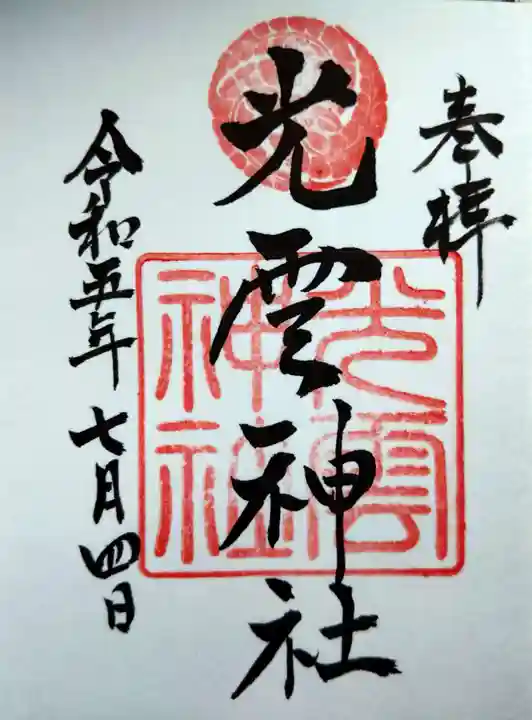 奉拝
光雲神社
光雲神社
令和五年七月四日